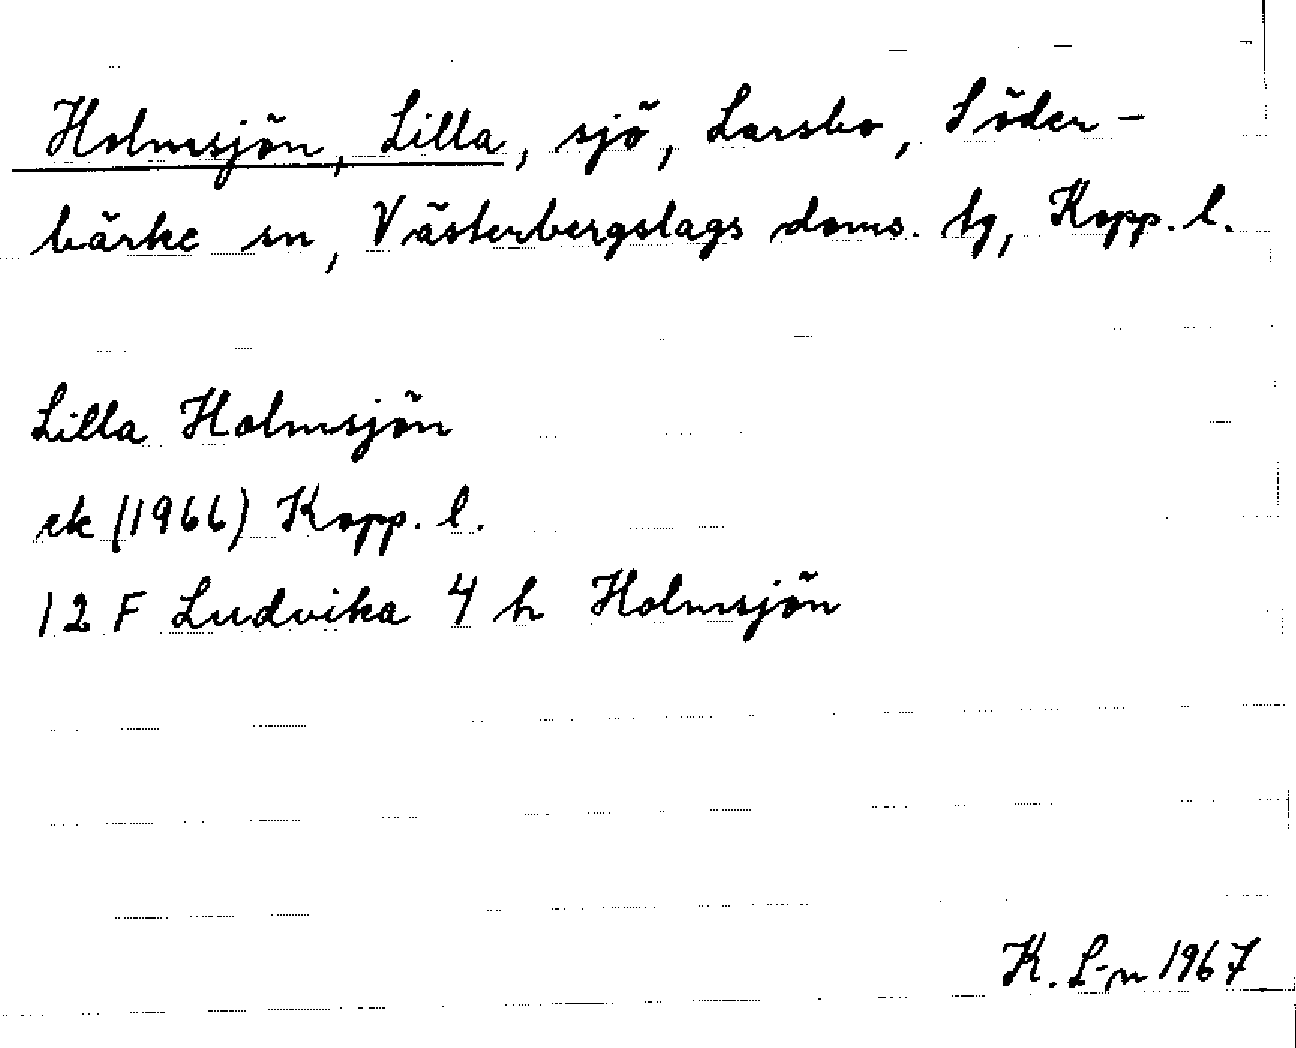 Holmsjön, Lilla, sjö, Larsbo, Söder-
bärke sn, Västerbergslags doms. tg, Kopp. l.
Lilla Holmsjön
ek (1966) Kopp. l.
12 F Ludvika 4 h Holmsjön
K. L-n 1967